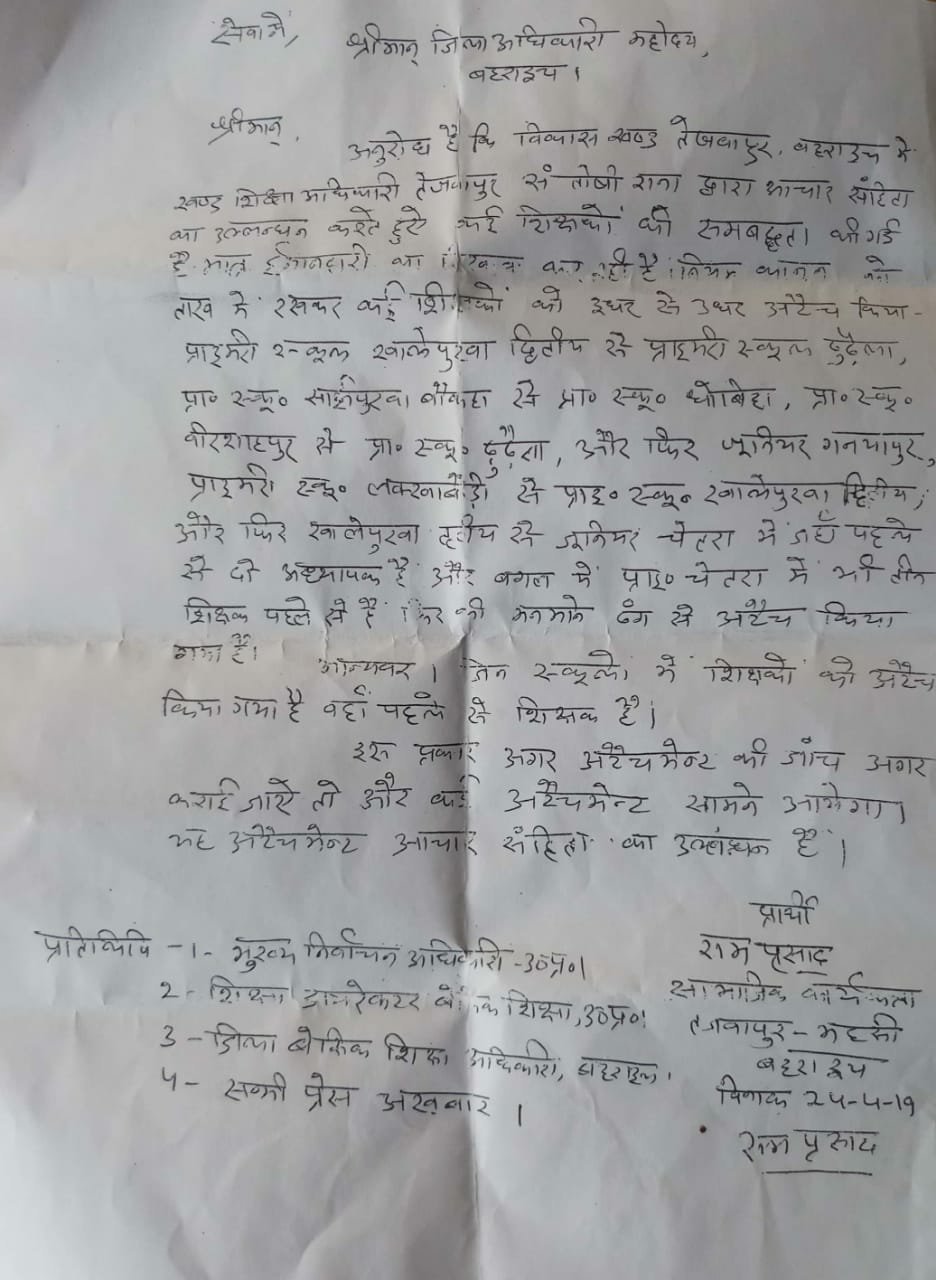 सेवा में,
श्रीमान् जिला अधिकारी महोदय,
बहराइच ।
श्रीमान्,
अनुरोध है कि विकास खण्ड तेजवापुर, बहराइच में
खण्ड शिक्षा अधिकारी तेजवापुर संतोषी राना द्वारा आचार संहिता
का उल्लन्घन करते हुऐ कई शिक्षकों की समबद्धता की गई
है मात्र ईमानदारी का कर रही है । नियम कानून को
ताख में रखकर कई शिक्षकों को इधर से उधर अटैच किया -
प्राइमरी स्कूल खालेपुरवा द्वितीय से प्राइमरी स्कूल ढुढ़ैला,
प्रा० स्कू० साईंपुरवा चौकहा से प्रा० स्कू० धोबिहा, प्रा० स्कू०
वीरशाहपुर से प्रा० स्कू० ढुढ़ैला, और फिर जूनियर गनयापुर,
प्राइमरी स्कू० लक्खाबौंड़ी से प्राइ० स्कू० खालेपुरवा द्वितीय,
और फिर खालेपुरवा तृतीय से जूनियर चेतरा में जहाँ पहले
से दो अध्यापक हैं और बगल में प्राइ० चेतरा में भी तीन
शिक्षक पहले से हैं । फिर भी मनमाने ढंग से अटैच किया
गया है।
मान्यवर । जिन स्कूलों में शिक्षकों को अटैच
किया गया है वहाँ पहले से शिक्षक हैं।
इस प्रकार अगर अटैचमेन्ट की जाँच अगर
कराई जाऐ तो और कई अटैचमेन्ट सामने आयेगा।
यह अटैचमेन्ट आचार संहिता का उल्लंघन है ।
प्रार्थी
राम प्रसाद
सामाजिक कार्यकर्ता
तेजवापुर - महसी
बहराइच
दिनांक 24-4-19
राम प्रसाद
प्रतिलिपि - 1 - मुख्य निर्वाचन अधिकारी - उ०प्र०।
2 - शिक्षा डायरेक्टर बेसिक शिक्षा, उ०प्र०।
3 - जिला बेसिक शिक्षा अधिकारी, बहराइच।
4 - सभी प्रेस अख़बार ।